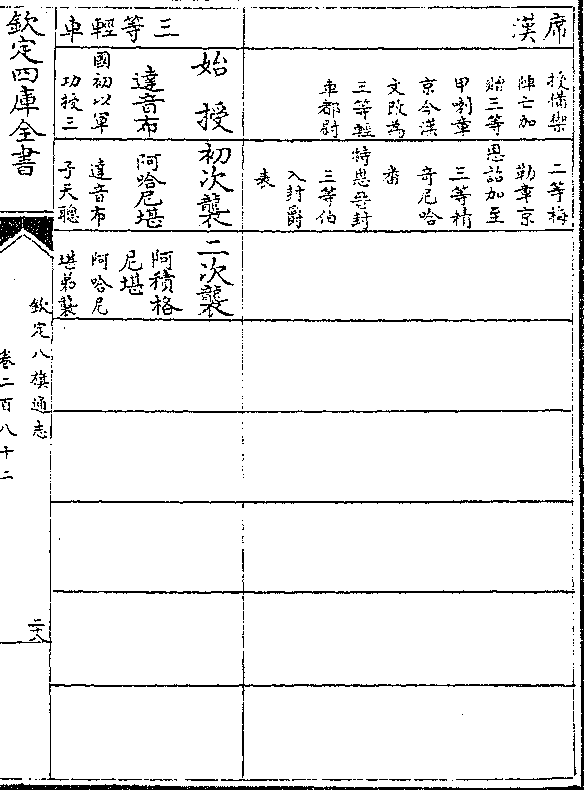 席漢
授備禦
陣亡加
贈三等
甲喇章
京今漢
文改為
三等輕
車都尉
二等梅
勒章京
恩詔加至
三等精
奇尼哈
番
特恩晉封
三等伯
入封爵
表
三等輕車
始授
達音布
國初以軍
功授三
初次襲
阿哈尼堪
達音布
子天聰
二次襲
阿積格
尼堪
阿哈尼
堪弟襲
欽定四庫全書
欽定八旗通志
卷二百八十二
二十八